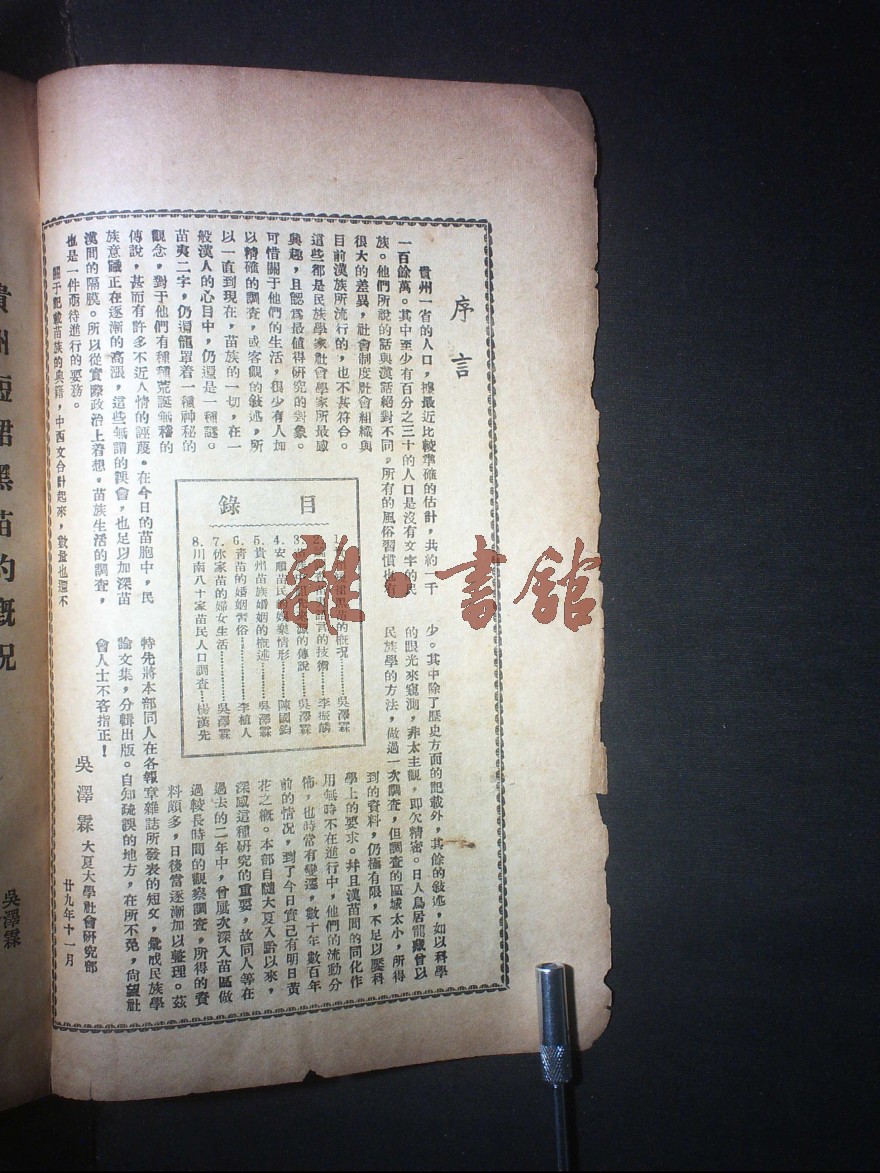 序言
貴州一省的人口，據最近比較準確的估計，共約一千
一百餘萬。其中至少有百分之三十的人口是沒有文字的民
族。他們所說的話與漢話絕對不同，所有的風俗習慣也有
很大的差異，社會制度社會組織與
目前漢族所流行的，也不甚符合。
這些都是民族學家社會學家所最感
興趣，且認爲最值得硏究的對象。
可惜關于他們的生活，很少有人加
以精確的調查，或客觀的敍述，所
以一直到現在，苗族的一切，在一
般漢人的心目中，仍還是一種謎。
苗夷二字，仍還籠罩着一種神秘的
觀念，對于他們有種種荒誕無稽的
傳說，甚而有許多不近人情的誣蔑。在今日的苗胞中，民
族意識正在逐漸的高漲，這些無謂的誤會，也足以加深苗
漢間的隔膜。所以從實際政治上着想，苗族生活的調查，
也是一件亟待進行的要務。
關于記載苗族的典籍，中西文合計起來，數量也還不
少。其中除了歷史方面的記載外，其餘的敍述，如以科學
的眼光來窺測，非太主觀，即欠精密。日人鳥居龍藏曾以
民族學的方法，做過一次調查，但調查的區域太小，所得
到的資料，仍極有限，不足以饜科
學上的要求。幷且漢苗間的同化作
用無時不在進行中，他們的流動分
佈，也時常有變遷，數十年數百年
前的情况，到了今日實已有明日黃
花之概。本部自隨大夏入黔以來，
深感這種硏究的重要，故同人等在
過去的二年中，曾屢次深入苗區做
過較長時間的觀察調查，所得的資
料頗多，日後當逐漸加以整理。茲
特先將本部同人在各報章雜誌所發表的短文，彙成民族學
論文集，分輯出版。自知疏誤的地方，在所不免，尙望社
會人士不吝指正！
吳澤霖 大夏大學社會硏究部
廿九年十一月
目錄
苗的概況…………吳澤霖
2.語言的技術…………李振麟
3.的傳說…………吳澤霖
4.安順苗民的娛樂情形…………陳國鈞
5.貴州苗族婚姻的概述…………吳澤霖
6.靑苗的婚姻習俗…………李植人
7.㑊家苗的婦女生活…………吳澤霖
8.川南八十家苗民人口調查…………楊漢先
雜·書館
貴州短裙黑苗的概況
吳澤霖